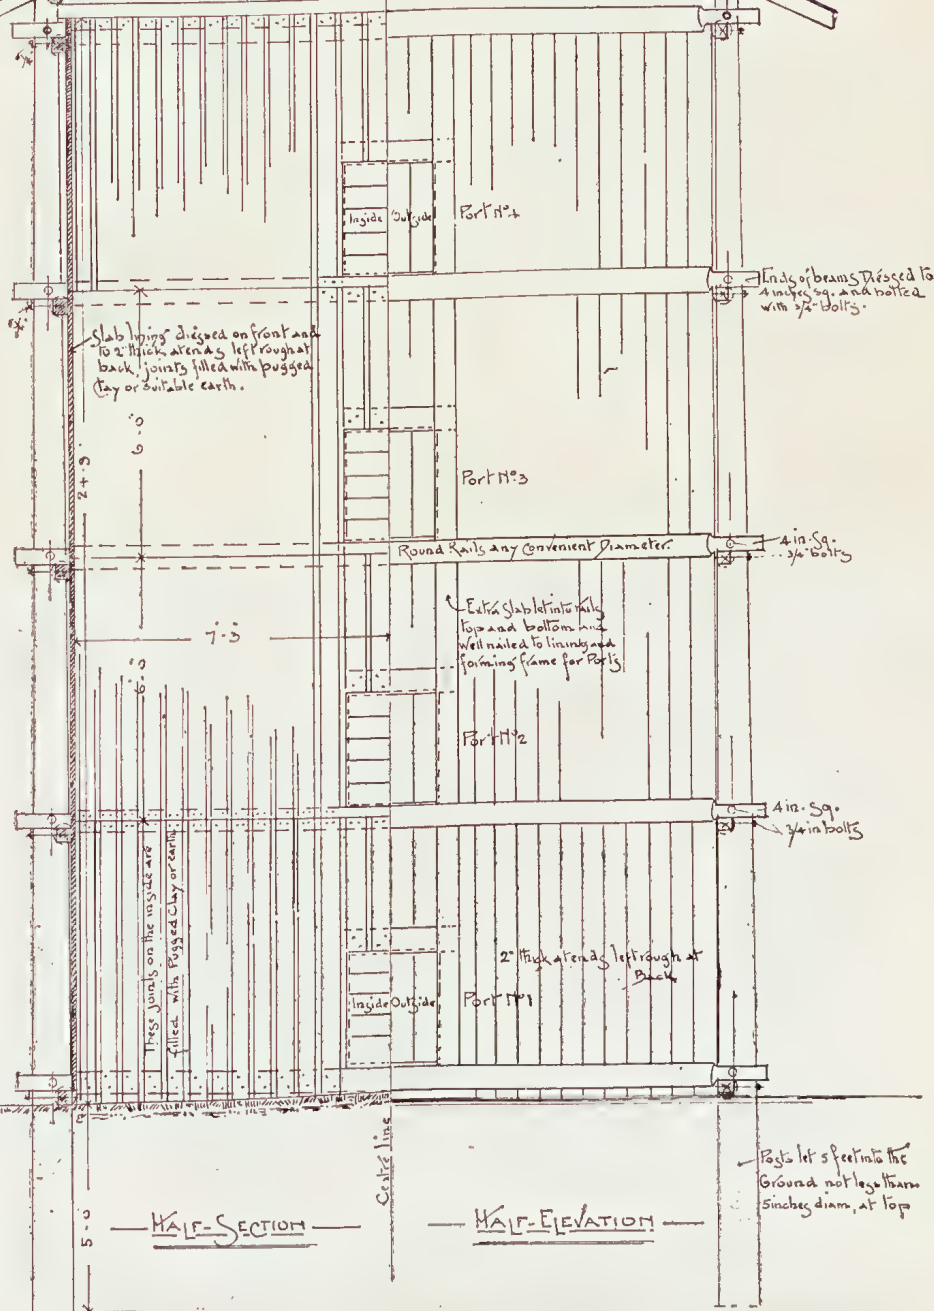 Inside Outside
Port No 4
Ends of beams Dressed to
4 inches sq. and bolted
with 3/4" bolts.
Slab lining dressed on front and
to 2" thick at ends left rough at
back, joints filled with pugged
Clay or suitable earth.
6'-0"
24'-9"
Port No 3
Round Rails any Convenient Diameter.
4 in. Sq.
3/4" bolts
Extra slab let into rails
top and bottom and
well nailed to lining and
forming frame for Ports
7'-3"
6'-0"
Port No 2
4 in. Sq.
3/4 in bolts
These joints on the inside are
filled with Pugged Clay or earth
2" thick at ends left rough at
Back
Inside Outside
Port No 1
Centre line
Posts let 5 feet into the
Ground not less than
5 inches diam, at top
HALF-SECTION
HALF-ELEVATION
5'-0"